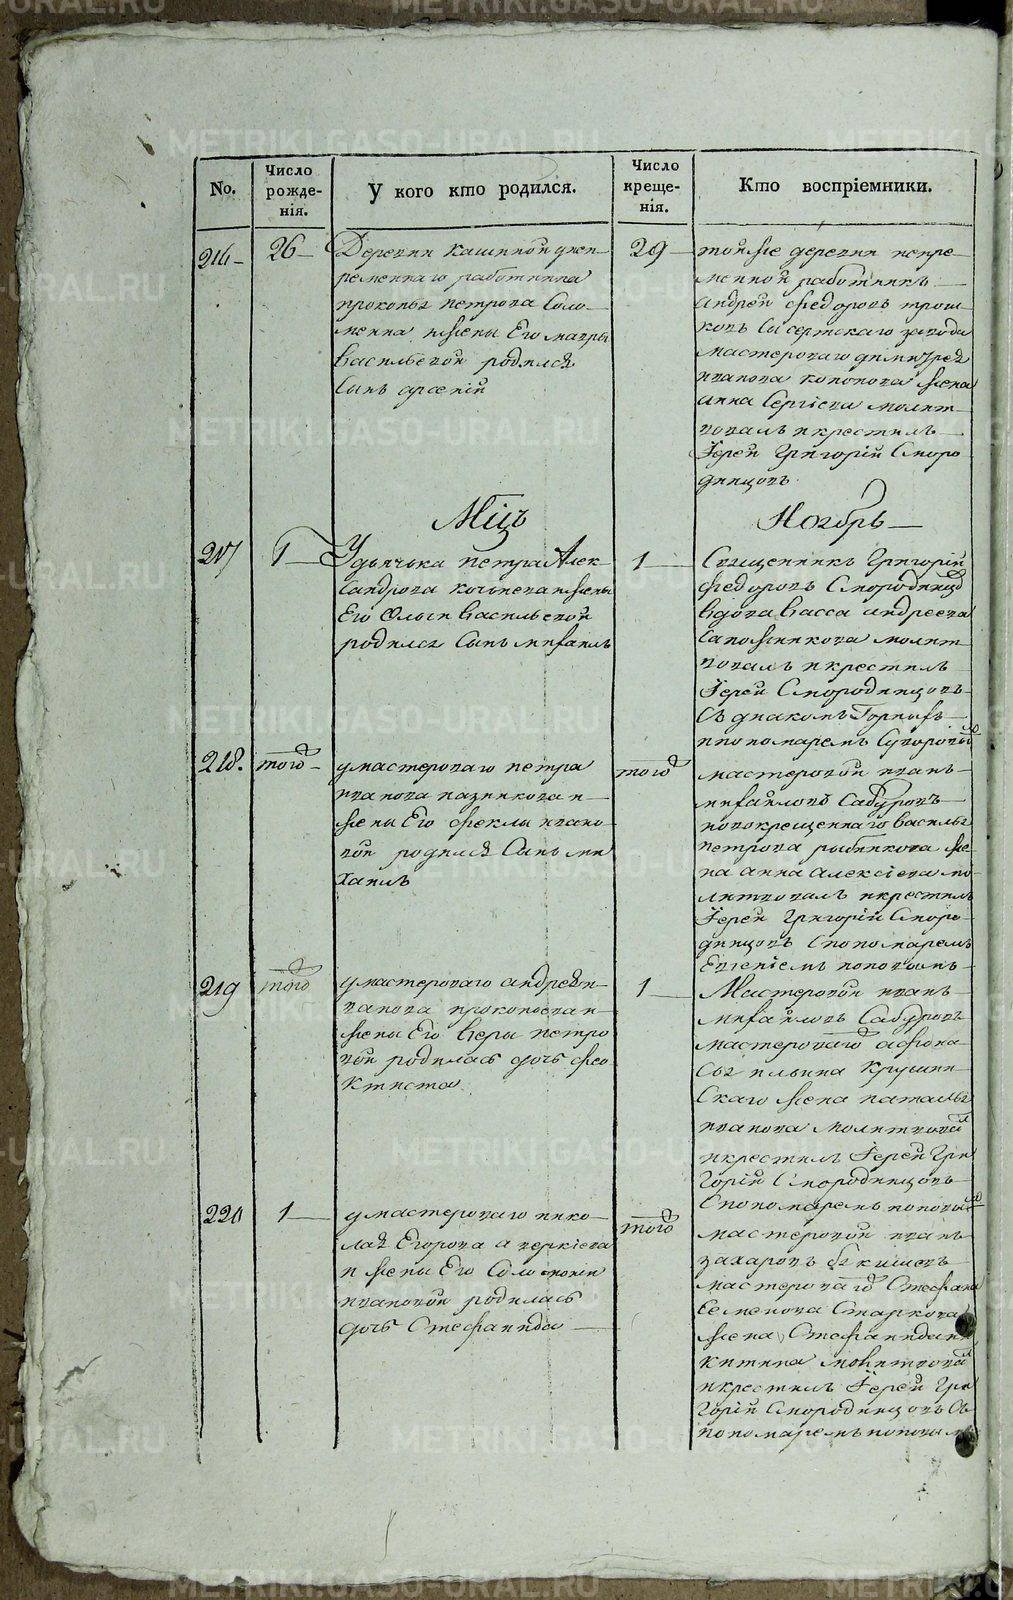 No.
Число рожде-нія.
У кого кто родился.
Число креще-нія.
Кто воспріемники.
216
26
Деревни Кашиной унеп-
ременнаго работника
прокопья петрова Соло-
менна ижены Его мавры
Васильевой родился
Сынъ арсеній
29
тойже деревни непре-
менной работникъ
андрей Федоровъ трош-
ковъ Сысертскаго завода
мастероваго димитрея
иванова копопова жена
анна Сергіева молит-
вовалъ икрестилъ
Іерей Григорій Сморо
динцовъ
Мцъ
Ноябрь
217
1
Удьячька петра Алек-
Сандрова кочьнева ижены
Его Ольги Васильевой
родился Сынъ михаилъ
1
Священникъ Григорій
Федоровъ Смородинцо
вдова Васса андреева
Сапожникова молит-
вовалъ икрестилъ
Іерей Смородинцовъ
Съ диакомъ Горныхъ
ипономаремъ Суворовы
218.
того
умастероваго петра
иванова казникова и
жены Его феклы ивано-
вой родился Сынъ ми-
хаилъ
того
мастеровой иванъ
михайловъ Сабуровъ
новокрещеннаго василья
петрова рыбникова же-
на анна Алексіева мо-
литвовалъ икрестилъ
Іерей Григорій Сморо-
динцовъ Спономаремъ
Евгеніемъ поповымъ
219
того
умастероваго андрея и-
ванова прокопьева и
жены Его Веры петро
вой родилась дочь фео
ктиста
1
Мастеровой иванъ
михайловъ Сабуровъ
мастероваго афона-
сья ильина Крушин-
Скаго жена наталья
иванова молитвова
икрестилъ Іерей Гри
горій Смородинцовъ
Спономаремъ поповы
220
1
умастероваго нико-
лая Егорова аверкіева
и жены Его Соломоніи
ивановой родилась
дочь Стефанида
того
мастеровой иванъ
захаровъ
мастероваго Стефана
Семенова Старкова
жена Стефанида ни
китина молитвова
икрестилъ Іерей Гри
горій Смородинцовъ Съ
пономаремъ поповы
METRIKI.GASO-URAL.RU